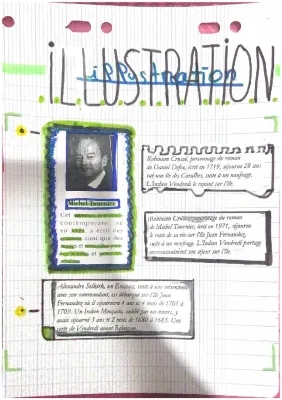 ILLUSTRATION
illustration
Michel Tournier
Cet
contemporain
en
des
ainsi que des
et
Robinson Crusoé, personnage du roman
de Daniel Defoe, écrit en 1719, séjourne 28 ans
sur une île des Caraïbes, suite à un naufrage.
L'Indien Vendredi le rejoint sur l'île.
Robinson Crusoé, personnage du roman
de Michel Tournier, écrit en 1971, séjourne
le reste de sa vie sur l'île Juan Fernandez,
suite à un naufrage. L'Indien Vendredi partage
momentanément son séjour sur l'île.
Alexandre Selkirk, un Ecossais, suite à une mésentente
avec son commandant, est débarqué sur l'île Juan
Fernandez où il séjournera 4 ans et 4 mois de 1705 à
1709. Un Indien Mosquito, oublié par un navire, y
avait séjourné 3 ans et 2 mois de 1680 à 1683. Une
sorte de Vendredi avant Robinson.